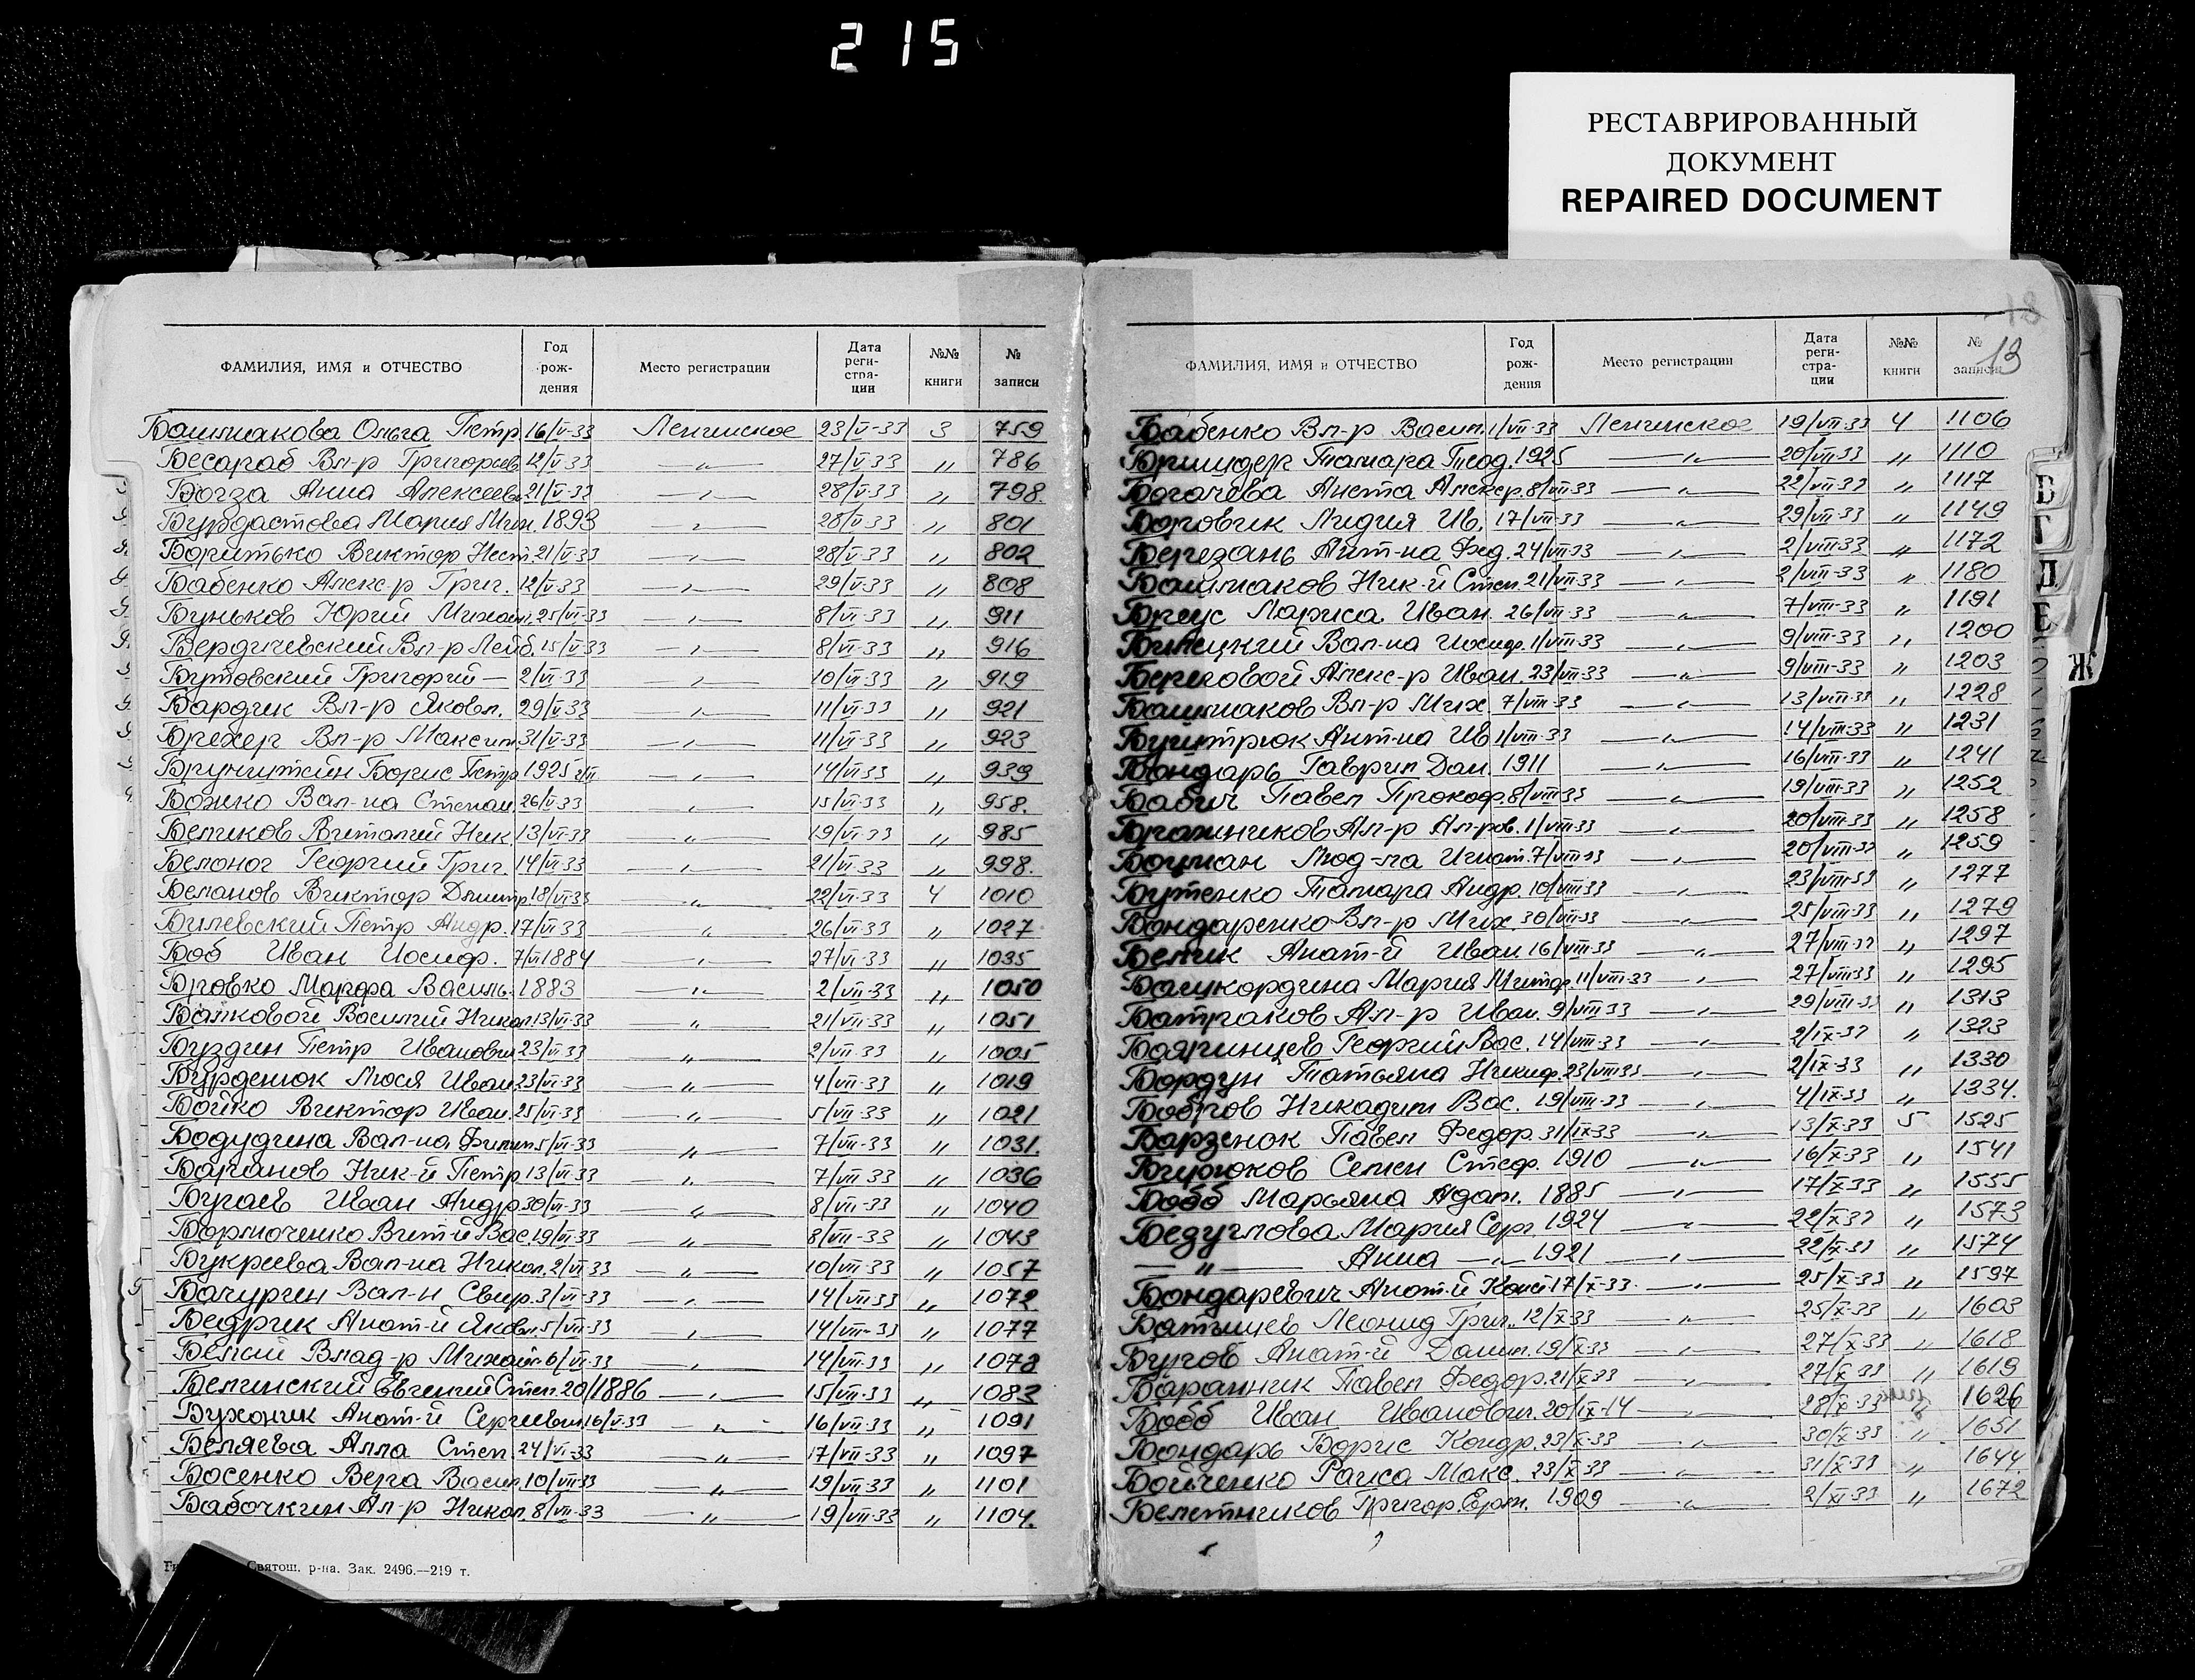 215
РЕСТАВРИРОВАННЫЙ
ДОКУМЕНТ
REPAIRED DOCUMENT
ФАМИЛИЯ, ИМЯ и ОТЧЕСТВО Год рож-дения Место регистрации Дата реги-стра-ции №№ книги № записи
Башмакова Ольга Петр 16/V-33 Ленинское 23/V-33 3 759
Бесараб Вл-р Григорьев 12/V-33 —〃— 27/V-33 〃 786
Богза Анна Алексеев 21/V-33 —〃— 28/V-33 〃 798.
Бурдастова Мария Мих. 1893 —〃— 28/V-33 〃 801
Боритько Виктор Нест. 21/V-33 —〃— 28/V-33 〃 802
Бабенко Алекс-р Григ. 12/V-33 —〃— 29/V-33 〃 808
Буньков Юрий Михайл. 25/V-33 —〃— 8/VI-33 〃 911
Бердичевский Вл-р Лейб. 15/V-33 —〃— 8/VI-33 〃 916
Бутовский Григорий — 2/VI-33 —〃— 10/VI-33 〃 919
Бардик Вл-р Яковл. 29/V-33 —〃— 11/VI-33 〃 921
Брехер Вл-р Максим 31/V-33 —〃— 11/VI-33 〃 923
Борис Петр 1925 —〃— 14/VI-33 〃 939
Божко Вал-на Степан. 26/V-33 —〃— 15/VI-33 〃 958.
Беликов Виталий Ник. 13/VI-33 —〃— 19/VI-33 〃 985
Белоног Георгий Григ. 14/VI-33 —〃— 21/VI-33 〃 998.
Беланов Виктор Дмитр. 18/VI-33 —〃— 22/VI-33 4 1010
Билевский Петр Андр. 17/VI-33 —〃— 26/VI-33 〃 1027
Боб Иван Иосиф. 7/VI 1884 —〃— 27/VI-33 〃 1035
Бровко Марфа Василь. 1883 —〃— 2/VII-33 〃 1050
Балковой Василий Никол. 13/VI-33 —〃— 21/VII-33 〃 1051
Буздин Петр Иванович 23/VI-33 —〃— 2/VII-33 〃 1005
Бурденюк Люся Иван 23/VI-33 —〃— 4/VII-33 〃 1019
Бойко Виктор Иван. 25/VI-33 —〃— 5/VII-33 〃 1021
Бодудина Вал-на Филип. 5/VI-33 —〃— 7/VII-33 〃 1031.
Баранов Ник-й Петр 13/VI-33 —〃— 7/VII 33 〃 1036
Бугаев Иван Андр. 30/VI-33 —〃— 8/VII-33 〃 1040
Бормоченко Вит-й Вас. 19/VI-33 —〃— 8/VII-33 〃 1043
Букреева Вал-на Никол. 2/VII-33 —〃— 10/VII-33 〃 1057
Бачурин Вал-н Свир. 3/VII-33 —〃— 14/VII-33 〃 1072
Бедрик Анат-й Яковл. 5/VII-33 —〃— 14/VII-33 〃 1077
Белый Влад-р Михайл. 6/VII-33 —〃— 14/VII-33 〃 1078
Белинский Евгений Степ. 20/1886 —〃— 15/VII-33 〃 1083
Бухоник Анат-й Сергеевич 16/V-33 —〃— 16/VII-33 〃 1091
Беляева Алла Степ. 24/VI-33 —〃— 17/VII-33 〃 1097
Босенко Вера Васил. 10/VII-33 —〃— 19/VII-33 〃 1101
Бабочкин Ал-р Никол. 8/VII-33 —〃— 19/VII-33 〃 1104.
Святош. р-на. Зак. 2496.—219 т.
13
13
ФАМИЛИЯ, ИМЯ и ОТЧЕСТВО Год рож-дения Место регистрации Дата реги-стра-ции №№ книги № записи
Бабенко Вл-р Васил. 1/VII-33 Ленинское 19/VII-33 4 1106
Тамара Теод. 1925 —〃— 20/VII-33 〃 1110
Богачева Анета Алекср. 8/VII-33 —〃— 22/VII-33 〃 1117
Боровик Лидия Ив. 17/VII-33 —〃— 29/VII-33 〃 1149
Березань Ант-на Фед. 24/VII-33 —〃— 2/VIII-33 〃 1172
Башмаков Ник-й Степ. 21/VII-33 —〃— 2/VIII-33 〃 1180
Бреус Лариса Иван. 26/VII-33 —〃— 7/VIII-33 〃 1191
Билецкий Вал-на Иосиф. 1/VIII-33 —〃— 9/VIII-33 〃 1200
Береговой Алекс-р Иван. 23/VII-33 —〃— 9/VIII-33 〃 1203
Башмаков Вл-р Мих. 7/VIII-33 —〃— 13/VIII-33 〃 1228
Ант-на Ив 1/VIII-33 —〃— 14/VIII-33 〃 1231
Бондарь Гаврил Дан. 1911 —〃— 16/VIII-33 〃 1241
Бабич Павел Прокоф. 8/VIII-33 —〃— 19/VIII-33 〃 1252
Бражников Ал-р Ал-ров. 1/VIII-33 —〃— 20/VIII-33 〃 1258
Боцман Люд-ла Игнат. 7/VIII-33 —〃— 20/VIII-33 〃 1259
Бутенко Тамара Андр. 10/VIII-33 —〃— 23/VIII-33 〃 1277
Бондаренко Вл-р Мих. 30/VII-33 —〃— 25/VIII-33 〃 1279
Белик Анат-й Иван. 16/VIII-33 —〃— 27/VIII-33 〃 1297
Мария 11/VIII-33 —〃— 27/VIII-33 〃 1295
Батраков Ал-р Иван. 9/VIII-33 —〃— 29/VIII-33 〃 1313
Бояринцев Георгий Вас. 14/VIII-33 —〃— 2/IX-33 〃 1323
Бордун Татьяна Никиф. 23/VIII-33 —〃— 2/IX-33 〃 1330
Бобров Никадим Вас. 19/VIII-33 —〃— 4/IX-33 〃 1334.
Барзенок Павел Федор. 31/IX-33 —〃— 13/X-33 5 1525
Бирюков Семен Стеф. 1910 —〃— 16/X-33 〃 1541
Бобб Марьяна Адам. 1885 —〃— 17/X-33 〃 1555
Безуглова Мария Серг 1924 —〃— 22/X-33 〃 1573
—〃— Анна —〃— 1921 —〃— 22/X-33 〃 1574
Бондаревич Анат-й Конст 17/X-33 —〃— 25/X-33 〃 1597
Батышев Леонид Григ. 12/X-33 —〃— 25/X-33 〃 1603
Бугов Анат-й Данил. 19/X-33 —〃— 27/X-33 〃 1618
Баранник Павел Федор. 21/X-33 —〃— 27/X-33 〃 1619
Бобб Иван Иванович. 20/IX-14 —〃— 28/X-33 1626
Бондарь Борис Кондр. 23/X-33 —〃— 30/X-33 〃 1651
Бойченко Раиса Макс. 23/X-33 —〃— 31/X-33 〃 1644.
Белетников Григор. Ерм. 1909 —〃— 2/XI-33 〃 1672
В
Г
Д
Е
Ж